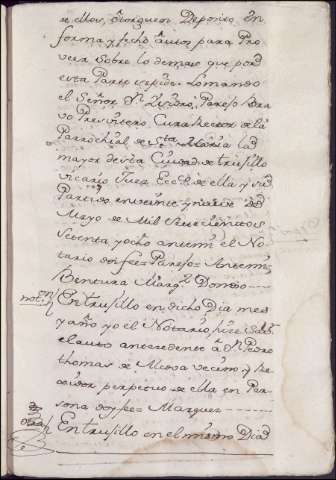 de ellos, otorguen Deposito En
forma y fecho autos para Pro
veer Sobre lo demas que por
esta Parte se pide: Lo mando
el Señor Dn. Isidro Paredo Bra
vo Presvitero Cura Rector de la
Parrochial de Sta. Maria la
mayor de esta Ciudad de trujillo
vicario Juez Ecco. de ella y su
Partido en veinte y nueve de
Mayo de Mil Setecientos
Setenta y ocho antemi el No
tario doi fee= Paredo= Antemi
Bentura Marqz. Dom
not. En trujillo en dicho Dia mes
y año yo el Notario, hize Saber
el auto antecedente á Dn. Pedro
thomas de vecino y Re
gidor perpetuo de ella en Per
sona doi fee= Marquez
otra En trujillo en el mismo Dia